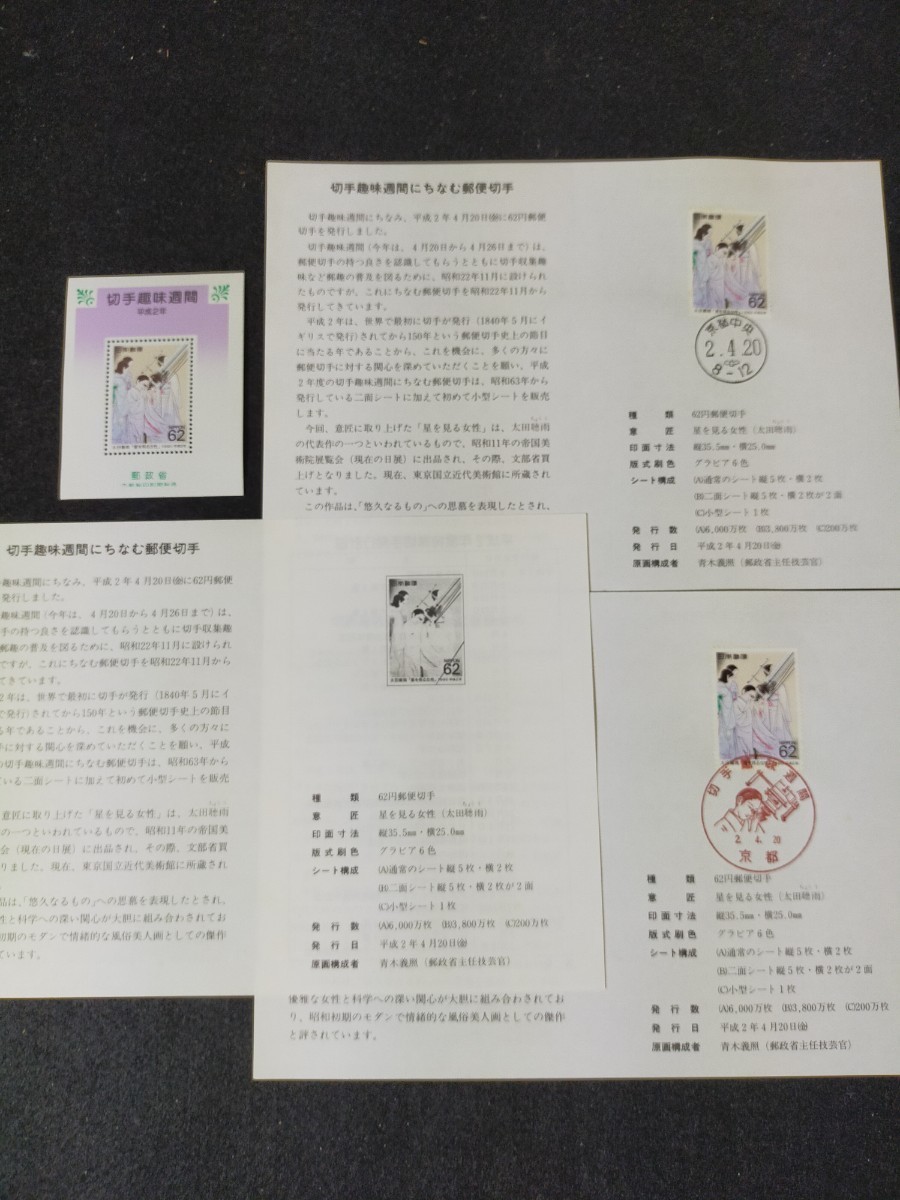 切手趣味週間
平成2年
日本郵便
62
郵政省
切手趣味週間にちなむ郵便切手
切手趣味週間にちなみ、平成2年4月20日㈮に62円郵便
切手を発行しました。
切手趣味週間(今年は、4月20日から4月26日まで)は、
郵便切手の持つ良さを認識してもらうとともに切手収集趣
味など郵趣の普及を図るために、昭和22年11月に設けられ
たものですが、これにちなむ郵便切手を昭和22年11月から
発行してきています。
平成2年は、世界で最初に切手が発行(1840年5月にイ
ギリスで発行)されてから150年という郵便切手史上の節目
に当たる年であることから、これを機会に、多くの方々に
郵便切手に対する関心を深めていただくことを願い、平成
2年度の切手趣味週間にちなむ郵便切手は、昭和63年から
発行している二面シートに加えて初めて小型シートを販売
します。
今回、意匠に取り上げた「星を見る女性」は、太田聴雨
の代表作の一つといわれているもので、昭和11年の帝国美
術院展覧会(現在の日展)に出品され、その際、文部省買
上げとなりました。現在、東京国立近代美術館に所蔵され
ています。
この作品は、「悠久なるもの」への思慕を表現したとされ、
日本郵便
62
京都中央
2.4.20
8-12
種類 62円郵便切手
意匠 星を見る女性(太田聴雨)
印面寸法 縦35.5mm・横25.0mm
版式刷色 グラビア6色
シート構成 (A)通常のシート縦5枚・横2枚
(B)二面シート縦5枚・横2枚が2面
(C)小型シート1枚
発行数 (A)6,000万枚 (B)3,800万枚 (C)200万枚
発行日 平成2年4月20日㈮
原画構成者 青木義照(郵政省主任技芸官)
切手趣味週間にちなむ郵便切手
趣味週間にちなみ、平成2年4月20日㈮に62円郵便
発行しました。
趣味週間(今年は、4月20日から4月26日まで)は、
手の持つ良さを認識してもらうとともに切手収集趣
郵趣の普及を図るために、昭和22年11月に設けられ
ですが、これにちなむ郵便切手を昭和22年11月から
てきています。
2年は、世界で最初に切手が発行(1840年5月にイ
で発行)されてから150年という郵便切手史上の節目
る年であることから、これを機会に、多くの方々に
手に対する関心を深めていただくことを願い、平成
の切手趣味週間にちなむ郵便切手は、昭和63年から
いる二面シートに加えて初めて小型シートを販売
意匠に取り上げた「星を見る女性」は、太田聴雨
の一つといわれているもので、昭和11年の帝国美
会(現在の日展)に出品され、その際、文部省買
りました。現在、東京国立近代美術館に所蔵され
品は、「悠久なるもの」への思慕を表現したとされ、
性と科学への深い関心が大胆に組み合わされてお
初期のモダンで情緒的な風俗美人画としての傑作
ています。
日本郵便
62
種類 62円郵便切手
意匠 星を見る女性(太田聴雨)
印面寸法 縦35.5mm・横25.0mm
版式刷色 グラビア6色
シート構成 (A)通常のシート縦5枚・横2枚
(B)二面シート縦5枚・横2枚が2面
(C)小型シート1枚
発行数 (A)6,000万枚 (B)3,800万枚 (C)200万枚
発行日 平成2年4月20日㈮
原画構成者 青木義照(郵政省主任技芸官)
優雅な女性と科学への深い関心が大胆に組み合わされてお
り、昭和初期のモダンで情緒的な風俗美人画としての傑作
と評されています。
日本郵便
62
切手趣味週間
2.4.20
京都
種類 62円郵便切手
意匠 星を見る女性(太田聴雨)
印面寸法 縦35.5mm・横25.0mm
版式刷色 グラビア6色
シート構成 (A)通常のシート縦5枚・横2枚
(B)二面シート縦5枚・横2枚が2面
(C)小型シート1枚
発行数 (A)6,000万枚 (B)3,800万枚 (C)200万枚
発行日 平成2年4月20日㈮
原画構成者 青木義照(郵政省主任技芸官)